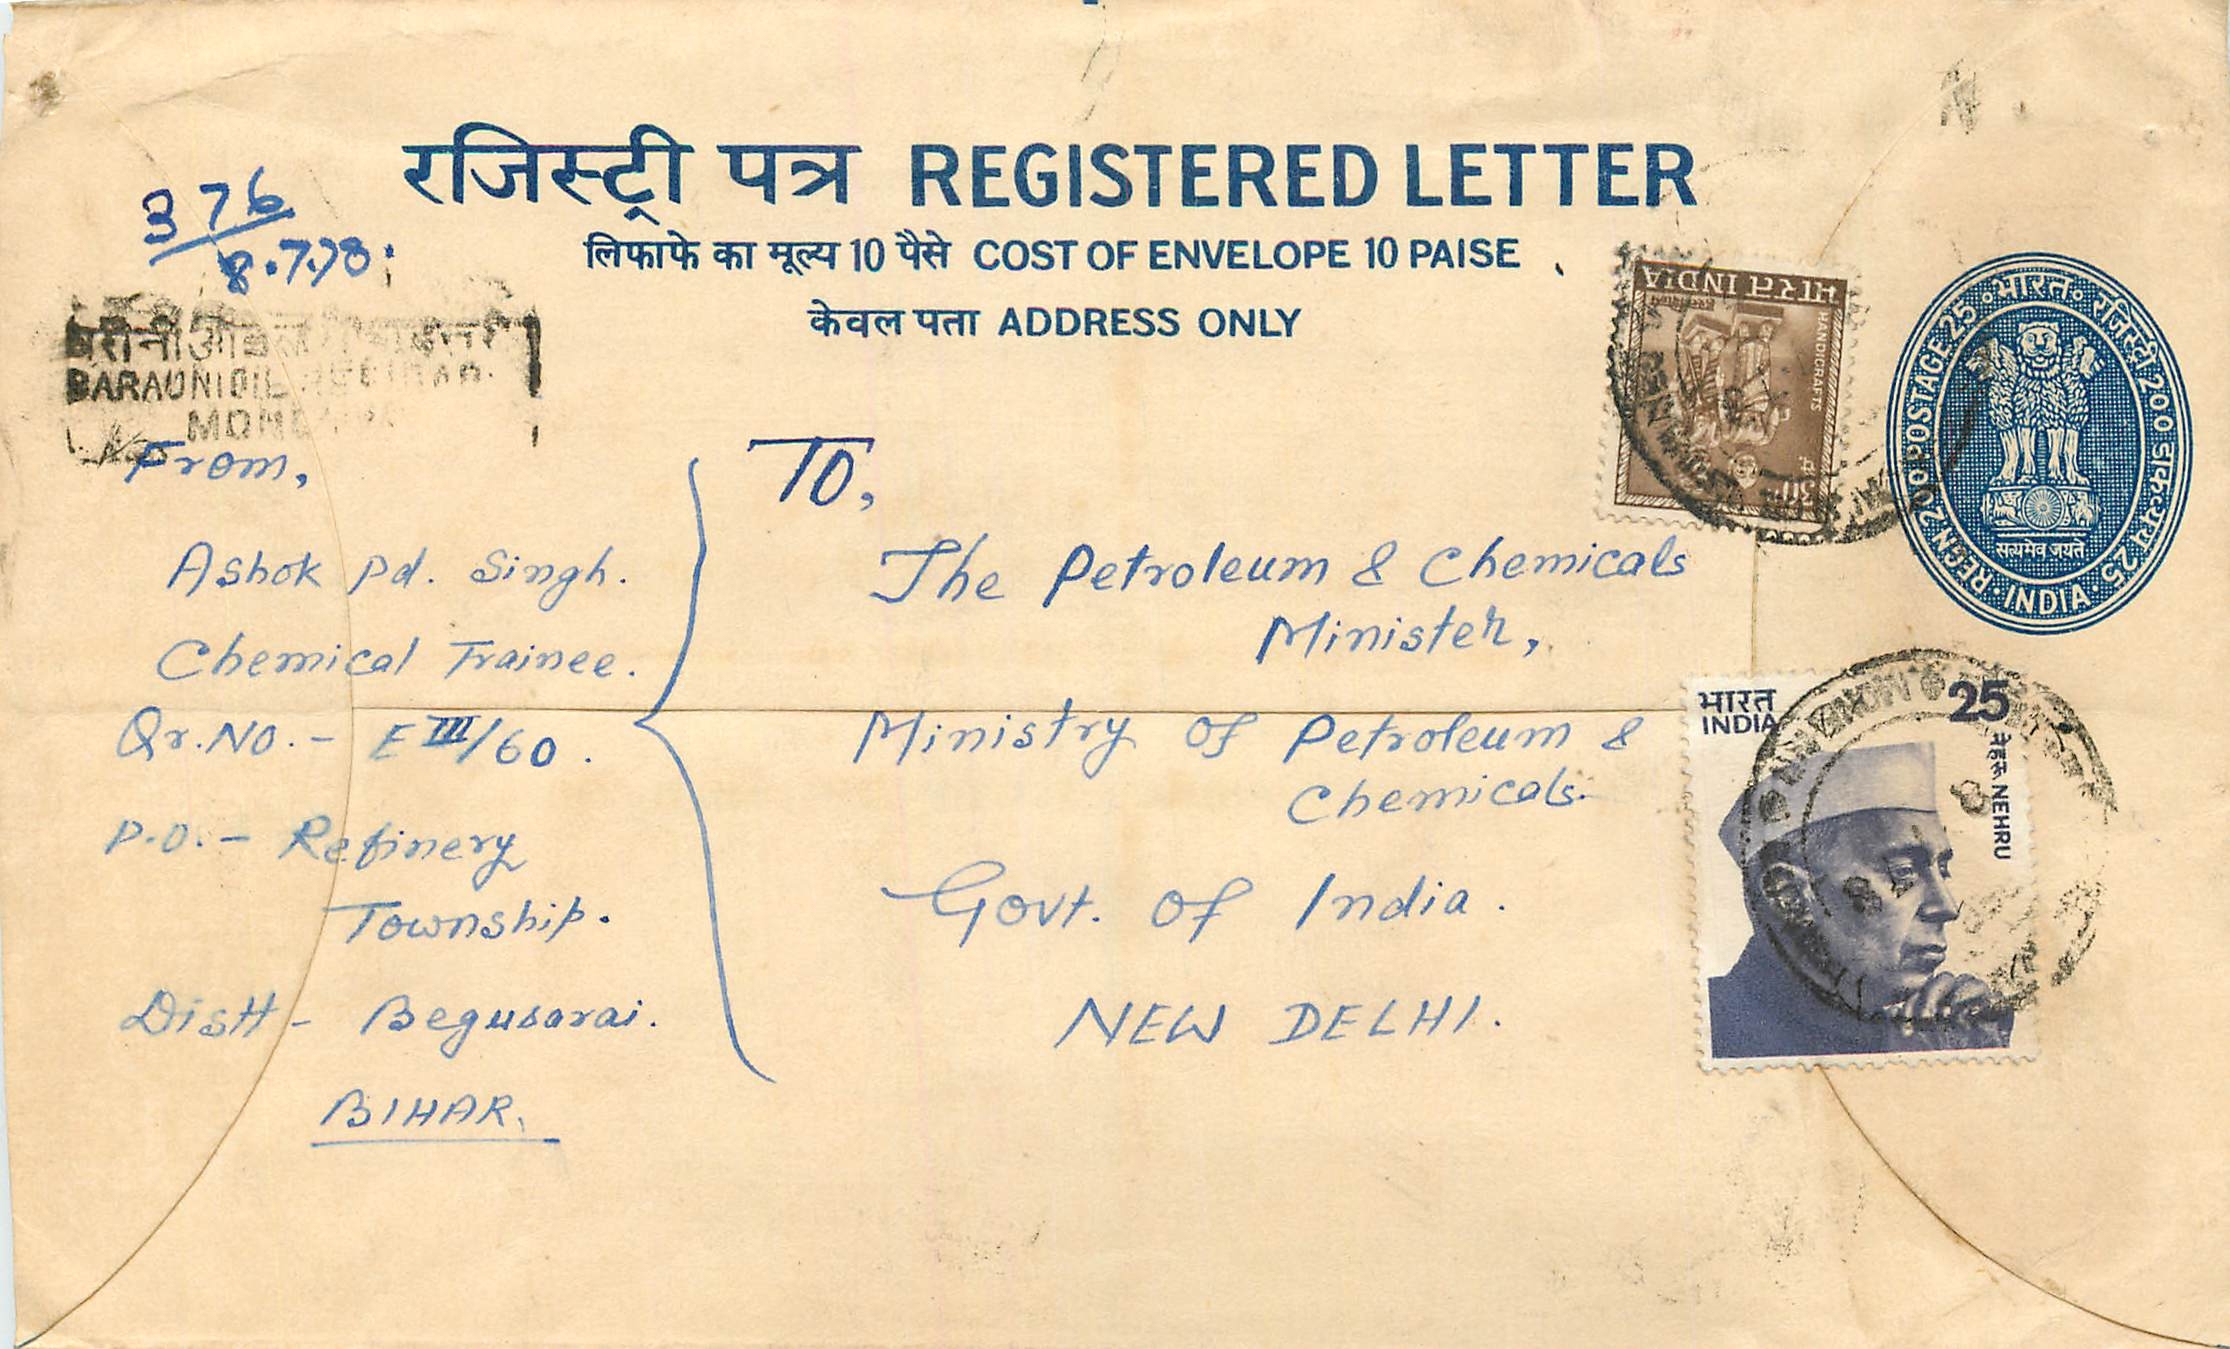 रजिस्ट्री पत्र REGISTERED LETTER
लिफाफे का मूल्य 10 पैसे COST OF ENVELOPE 10 PAISE
केवल पता ADDRESS ONLY
376
8.7.78.
BARAUNI OIL
From,
Ashok Pd. Singh.
Chemical Trainee.
Qr. NO. - E III/60.
P.O. - Refinery
Township.
Distt - Begusarai.
BIHAR.
TO,
The Petroleum & Chemicals
Minister,
Ministry of Petroleum &
Chemicals.
Govt. of India.
NEW DELHI.
भारत INDIA
हस्तशिल्प
HANDICRAFTS
भारत रजिस्ट्री 200 डाक-व्यय 25
REGN. 200 POSTAGE 25
INDIA
सत्यमेव जयते
भारत
INDIA
25
नेहरू NEHRU